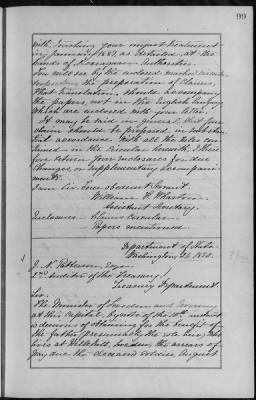 99
with, involving your unjust treatment
in January 1882, as detailed, at the
hands of Nicaraguan Authorities.
You will see by the enclosed marked circular
respecting the preparation of Claims,
that translations should accompany
the papers, not in the English language
which are enclosed with your letter.
It may be said in general, that your
claim should be prepared in substan-
tial accordance with all the rules con-
tained in the Circular herewith. I there-
fore return your enclosures for due
changes or supplementary accompani-
ments.
I am Sir, Your obedient Servant,
William F. Wharton.
Assistant Secretary.
Enclosures Claims Circular
Papers mentioned.
Department of State.
Washington,
J. N. Patterson, Esqre.
2nd Auditor of the Treasury,
Treasury Department.
Sir:
The Minister of Sweden and Norway
at this Capital, by note of the 10th instant
is desirous of obtaining for the benefit of
the father, presumably the sole heir, who
lives at Sweden, the arrears of
pay due the deceased soldier, August